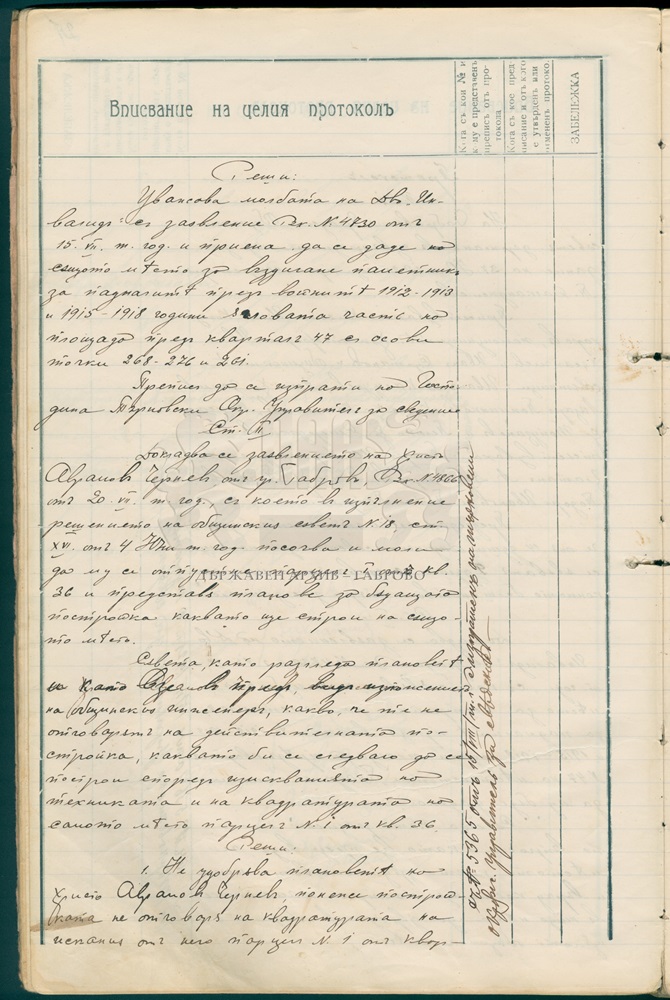 Вписвание на целия протоколъ
Кога съ кой № и к му е представенъ преписъ отъ протокола
Кога съ кое предписание и отъ кого е утвърденъ или отмененъ протоко.
ЗАБЕЛЕЖКА
Реши:
Уважава молбата на Дв. Ин-
валидъ съ заявление Вх. N. 4730 отъ
15. VII. т. год. и приема да се даде на
същото мѣсто за въздигане паметникъ
за падналитѣ презъ войнитѣ 1912-1913
и 1915-1918 години частъ на
площада предъ кварталъ 47 съ осови
точки 268-276 и 261.
Преписъ да се изпрати на Госпо-
дина Търновски Окр. Управитель за сведение
Ст. II
Докладва се заявлението на Христо
Авრамовъ Черневъ отъ гр. Габрово, Вх. N. 4866
отъ 20. VII. т. год. съ което въ изпълнение
решението на общинския съветъ N. 18, ст.
XVI. отъ 4 Юни т. год. посочва и моли
да му се отпустне парцелъ I отъ кв.
ДЪРЖАВЕН АРХИВ – ГАБРОВО
36 и представя планове за бъдащата
постройка каквато ще строи на също-
то мѣсто.
Съвета, като разгледа плановетѣ
и като предъ видъ изложението
на общинския инженеръ, какво, че тѣ не
отговарятъ на действителната по-
стройка, каквато би се следвало да се
построи споредъ изискванията на
техниката и на квадратурата на
самото мѣсто парцелъ N. 1 отъ кв. 36.
Реши:
1. Не удобрява плановетѣ на
Христо Аврамовъ Черневъ, понеже построй-
ката не отговаря на квадратурата на
искания отъ него парцел N. 1 отъ квар-
N. 5365 отъ 18/VIII т.г. изпратенъ на Търновски
окржж. управитель за сведение